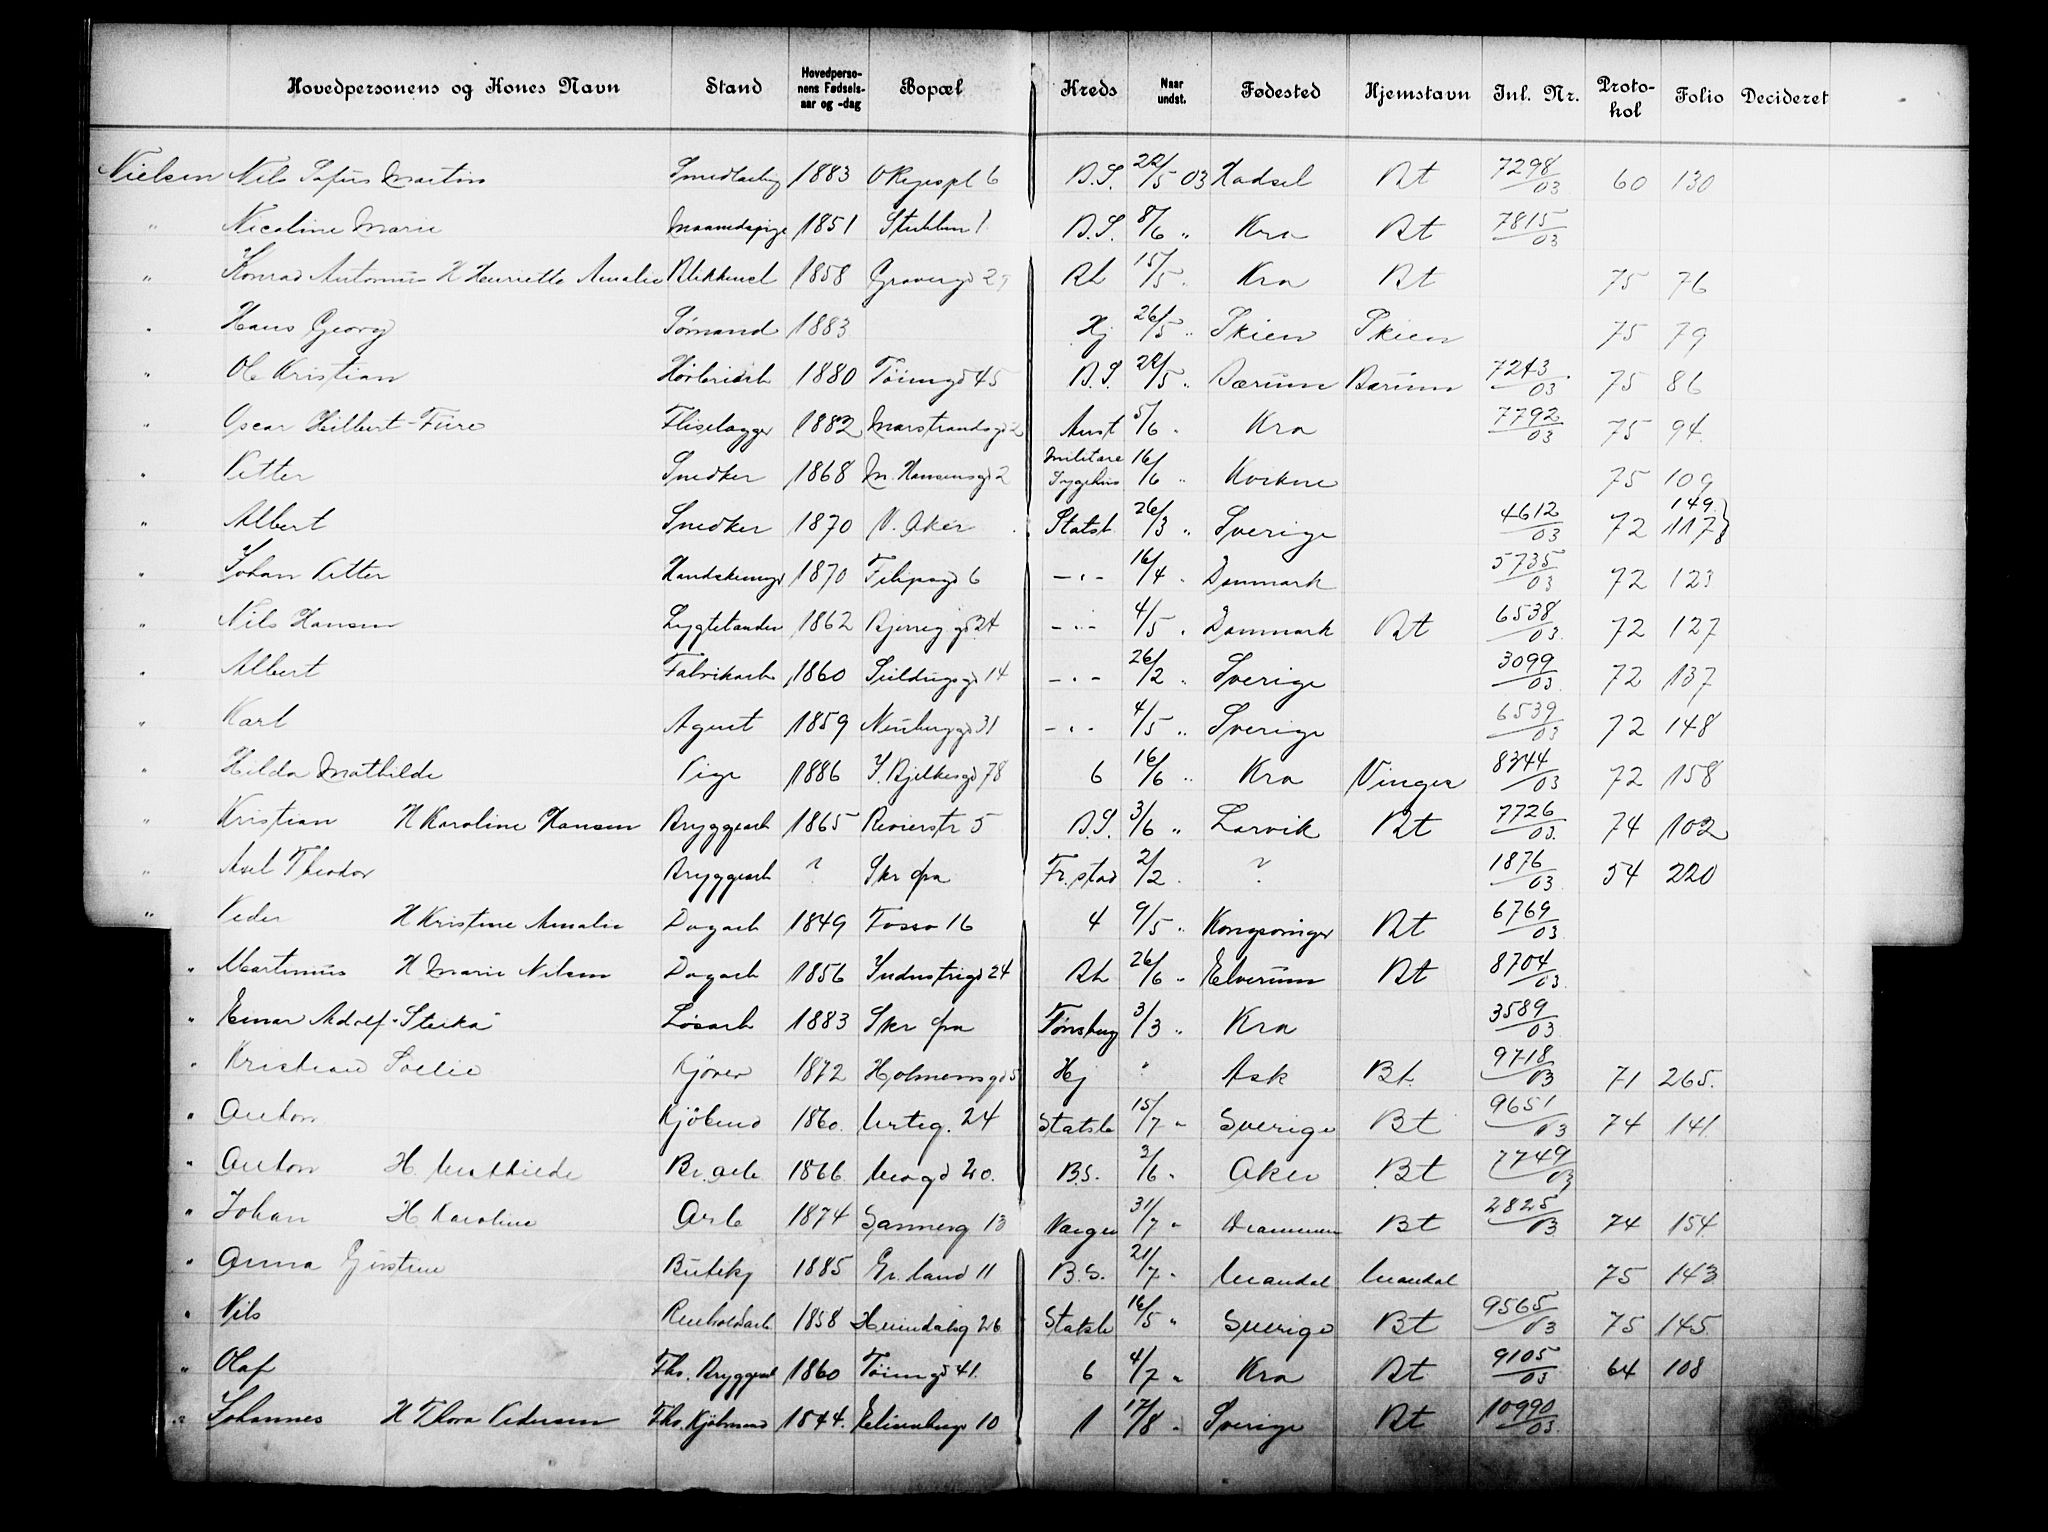 Hovedpersonens og Kones Navn Stand Hovedpersonens Fødselsaar og -dag Bopæl Kreds Naar undst. Fødested Hjemstavn Inl. Nr. Protokol Folio Decideret
Nielsen Nils Sofus Martin Smedlærling 1883 O Ryespl 6 B.S. 22/5 03 Hadsel Bt 7298/03 60 130
" Nicoline Marie Maanedspige 1851 1 B.S. 8/6 " Kra Bt 7815/03
" Konrad Antonius H Henriette Amalie Blikkensl 1858 Gravergd Rh 15/5 " Kra Bt 75 76
" Hans Georg Sømand 1883 Hj 26/5 " Skien Skien 75 79
" Ole Kristian 1880 Töiengd 45 B.S. 22/5 " Bærum Bærum 7243/03 75 86
" Oscar Hilbert - Fure Fliselægger 1882 Marstrandsgd 2 Aust 5/6 " Kra 7792/03 75 94
" Petter Snedker 1868 M. Hansensgd 2 Militære Sygehus 16/6 " Kvikne 75 109
" Albert Snedker 1870 V. Aker Statsb. 26/3 " Sverige 4612/03 72 149. 117
" Johan Petter Handskemgr 1870 Filipsgd 6 - " - 16/4 " Danmark 5735/03 72 123
" Nils Hansen Lygtetænder 1862 Bjerreggd 24 - " - 4/5 " Danmark Bt 6538/03 72 127
" Albert Fabrikarb 1860 14 - " - 26/2 " Sverige 3099/03 72 137
" Karl Agent 1859 Neuberggd 31 - " - 4/5 " Sverige 6539/03 72 148
" Hilda Mathilde Pige 1886 J. Bjelkesgd 78 6 16/6 " Kra Vinger 8344/03 72 158
" Kristian H Karoline Hansen Bryggearb 1865 Revierstr 5 B.S. 3/6 " Larvik Bt 7726/03 74 102
" Axel Theodor Bryggearb ? Skr fra Fr.stad 2/2 " ? 1876/03 54 220
" Peder H Kristine Amalie Dagarb 1849 Fosso 16 4 9/5 " Kongsvinger Bt 6769/03
" Martinius H Marie Nilsen Dagarb 1856 Industrigd 24 Rh 26/6 " Elverum Bt 8704/03
" Einar Adolf "Steika" Løsarb 1883 Skr fra Tønsberg 3/3 " Kra 3589/03
" Kristian Kjører 1872 Holmensgd 5 Hj " Ask Bt. 9718/03 71 265.
" Anton Kjöbmd 1860. Urteg. 24 Statsb 15/7 " Sverige Bt 9651/03 74 141.
" Anton H. Mathilde Br. arb 1866 Mogd 20. B.S. 2/6 " Aker Bt 7749/03
" Johan H Karoline Arb 1874 Sannerg 13 31/7 " Drammen Bt 2825/03 74 154.
" Anna Gjurstine Butikj 1885 Gr. land 11 B.S. 21/7 " Mandal Mandal 75 143
" Nils Renholdsarb 1858 Heimdalsg 26 Statsb 16/5 " Sverige Bt 9565/03 75 145.
" Olaf Fhs. Bryggearb 1860 Töiengd 41. 6 4/7 " Kra Bt 9105/03 64 108
" Johannes H Thora Pedersen Fhs. Kjöbmand 1844. Elisenbergv 10 1 17/8 " Sverige Bt 10990/03